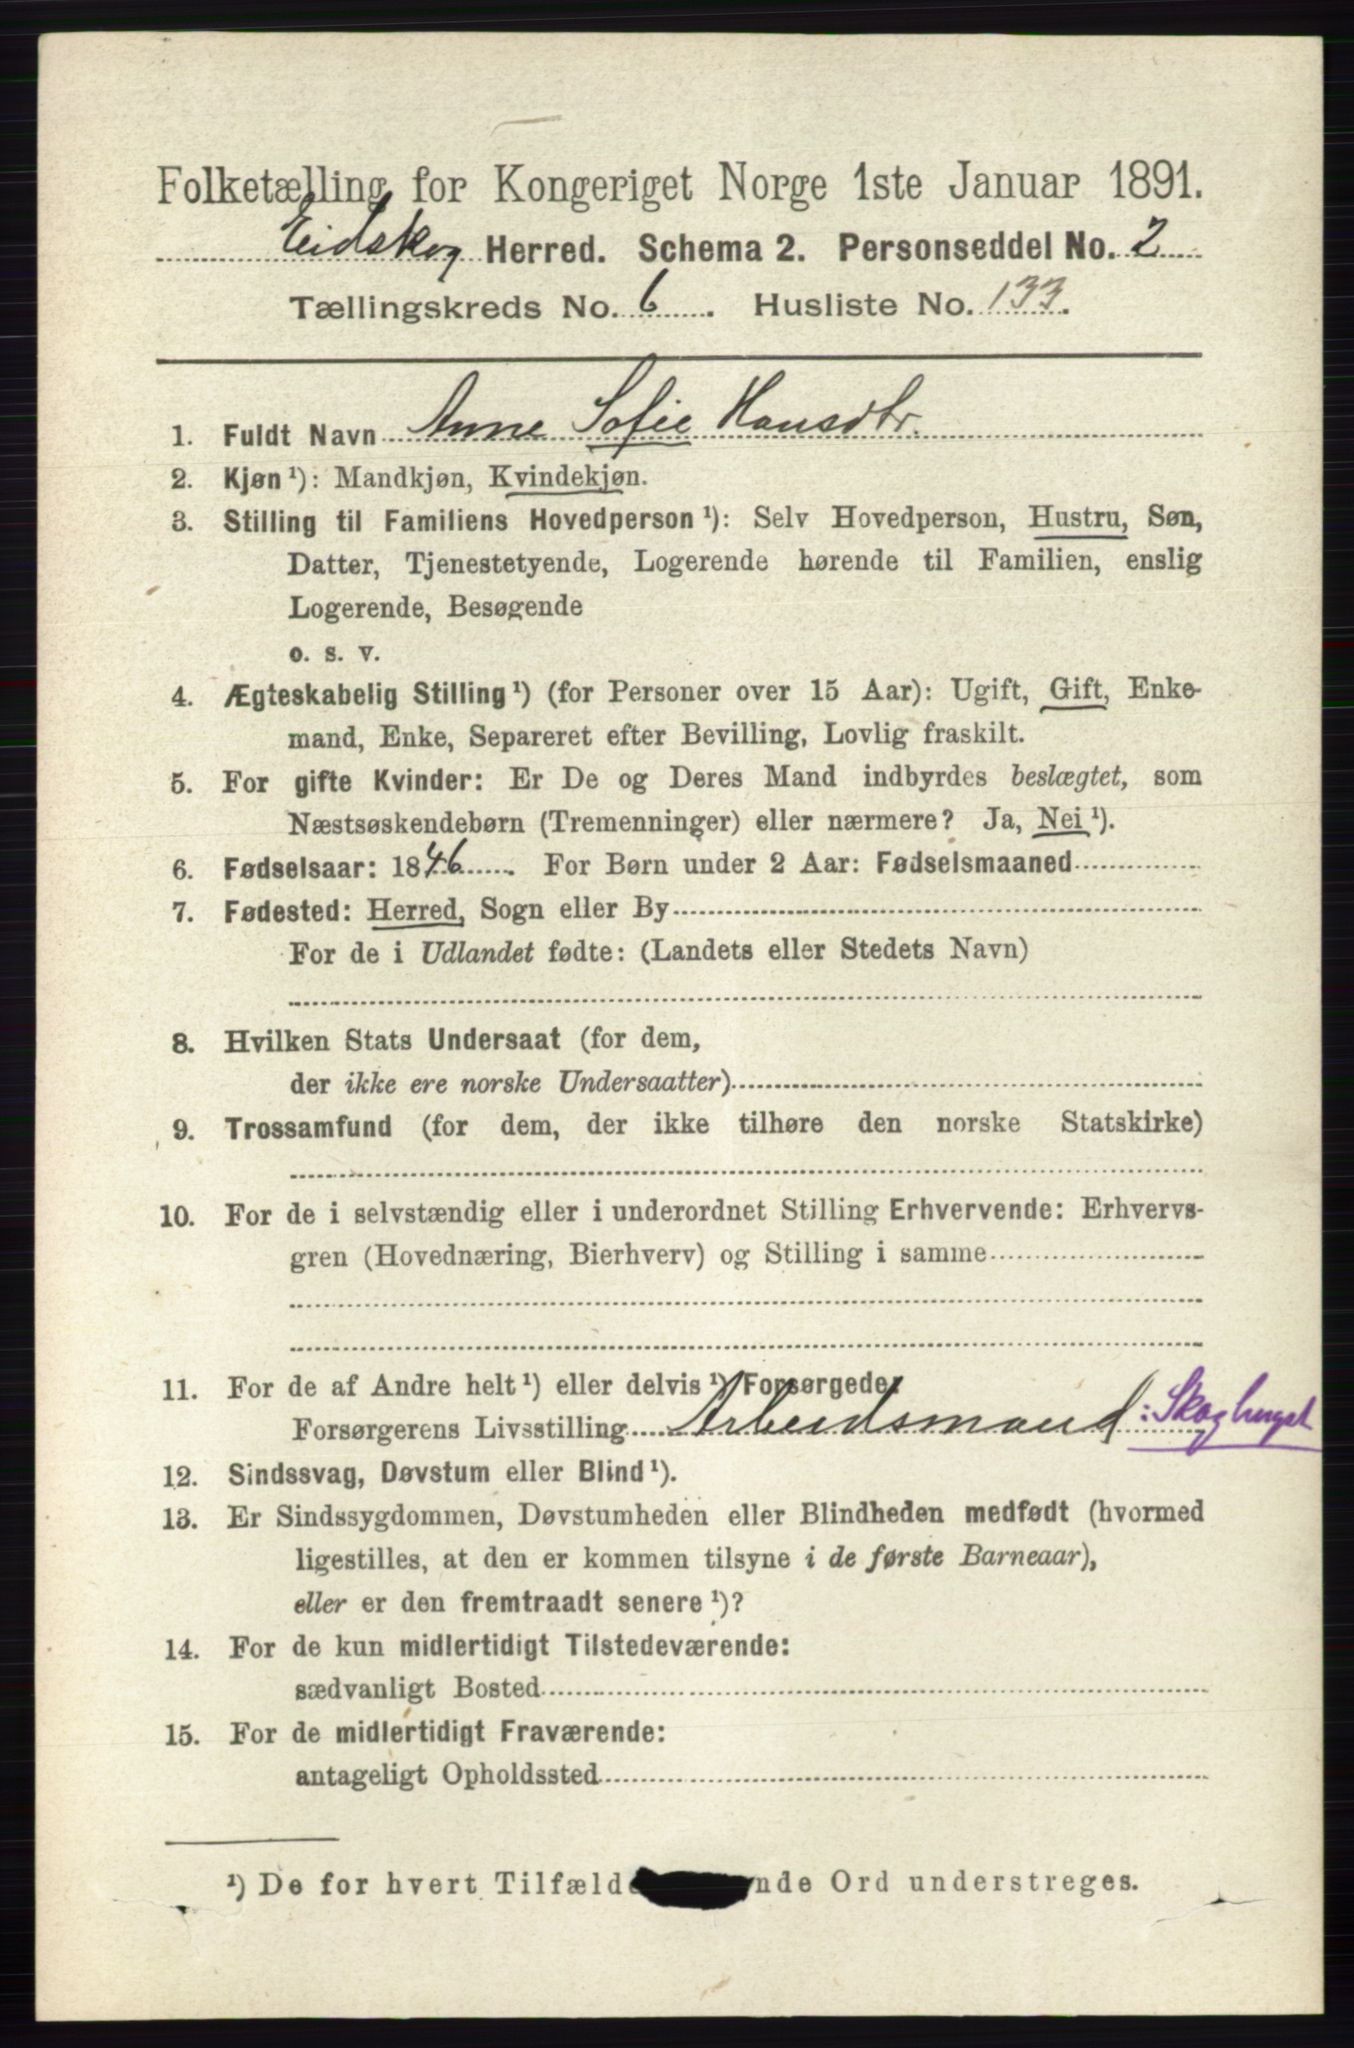 Folketælling for Kongeriget Norge 1ste Januar 1891.
Eidskog Herred. Schema 2. Personseddel No. 2
Tællingskreds No. 6. Husliste No. 133.
1. Fuldt Navn Anne Sofie Hansdtr.
2. Kjøn ¹): Mandkjøn, Kvindekjøn.
3. Stilling til Familiens Hovedperson ¹): Selv Hovedperson, Hustru, Søn,
Datter, Tjenestetyende, Logerende hørende til Familien, enslig
Logerende, Besøgende
o. s. v.
4. Ægteskabelig Stilling ¹) (for Personer over 15 Aar): Ugift, Gift, Enke-
mand, Enke, Separeret efter Bevilling, Lovlig fraskilt.
5. For gifte Kvinder: Er De og Deres Mand indbyrdes beslægtet, som
Næstsøskendebørn (Tremenninger) eller nærmere? Ja, Nei ¹).
6. Fødselsaar: 1846. For Børn under 2 Aar: Fødselsmaaned
7. Fødested: Herred, Sogn eller By
For de i Udlandet fødte: (Landets eller Stedets Navn)
8. Hvilken Stats Undersaat (for dem,
der ikke ere norske Undersaatter)
9. Trossamfund (for dem, der ikke tilhøre den norske Statskirke)
10. For de i selvstændig eller i underordnet Stilling Erhvervende: Erhvervs-
gren (Hovednæring, Bierhverv) og Stilling i samme
11. For de af Andre helt ¹) eller delvis ¹) Forsørgede:
Forsørgerens Livsstilling Arbeidsmand
12. Sindssvag, Døvstum eller Blind ¹).
13. Er Sindssygdommen, Døvstumheden eller Blindheden medfødt (hvormed
ligestilles, at den er kommen tilsyne i de første Barneaar),
eller er den fremtraadt senere ¹)?
14. For de kun midlertidigt Tilstedeværende:
sædvanligt Bosted
15. For de midlertidigt Fraværende:
antageligt Opholdssted
¹) De for hvert Tilfælde nde Ord understreges.